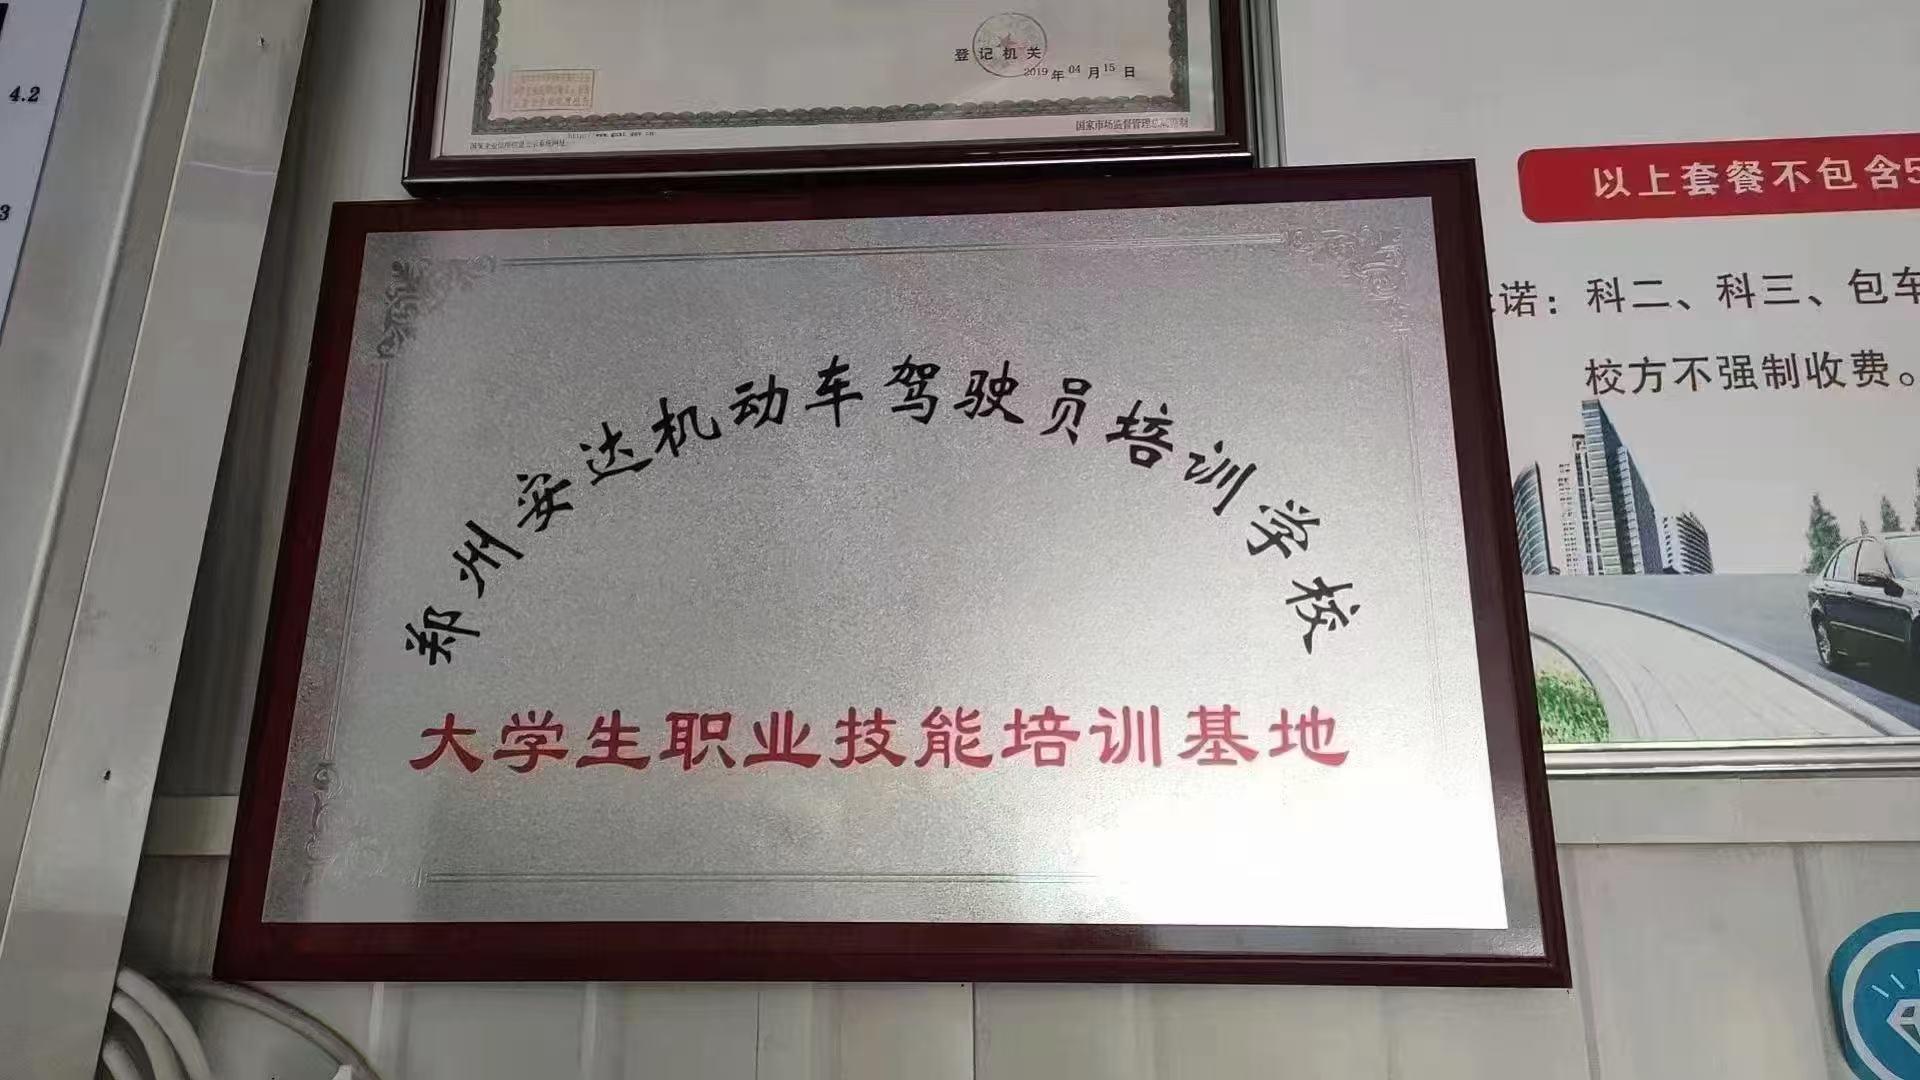 4.2
3
登记机关
2019年04月15日
http://www.gsxt.gov.cn
国家企业信用信息公示系统网址:
国家市场监督管理总局监制
以上套餐不包含5
诺：科二、科三、包车
校方不强制收费。
郑州安达机动车驾驶员培训学校
大学生职业技能培训基地